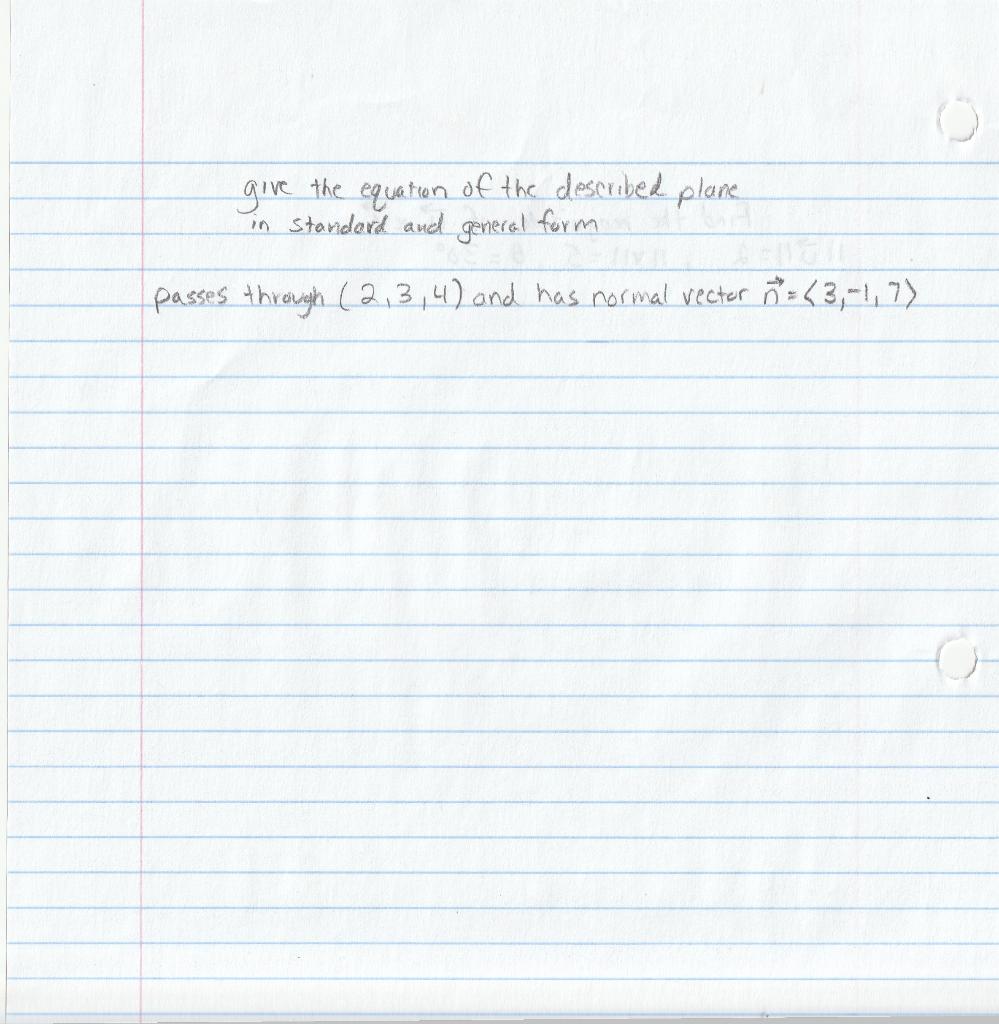 give the equation of the described plane
in standard and general form
passes through (2,3,4) and has normal vector n⃗ = ⟨3,-1,7⟩